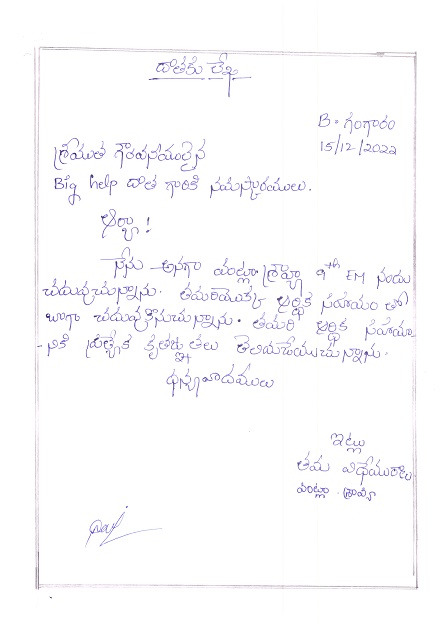 దాతకు లేఖ
B. గంగారం
15/12/2022
శ్రీయుత గౌరవనీయులైన
Big help దాత గారికి నమస్కారములు.
ఆర్యా !
నేను అనగా వంట్లా శ్రావ్యా 9th EM నందు
చదువుచున్నాను. తమరియొక్క ఆర్థిక సహాయం తో
బాగా చదువుకొనుచున్నాను. తమరి ఆర్థిక సహాయా
-నికి ప్రత్యేక కృతజ్ఞతలు తెలియచేయుచున్నాను.
ధన్యవాదములు
ఇట్లు
తమ విధేయురాలు
వంట్లా శ్రావ్య